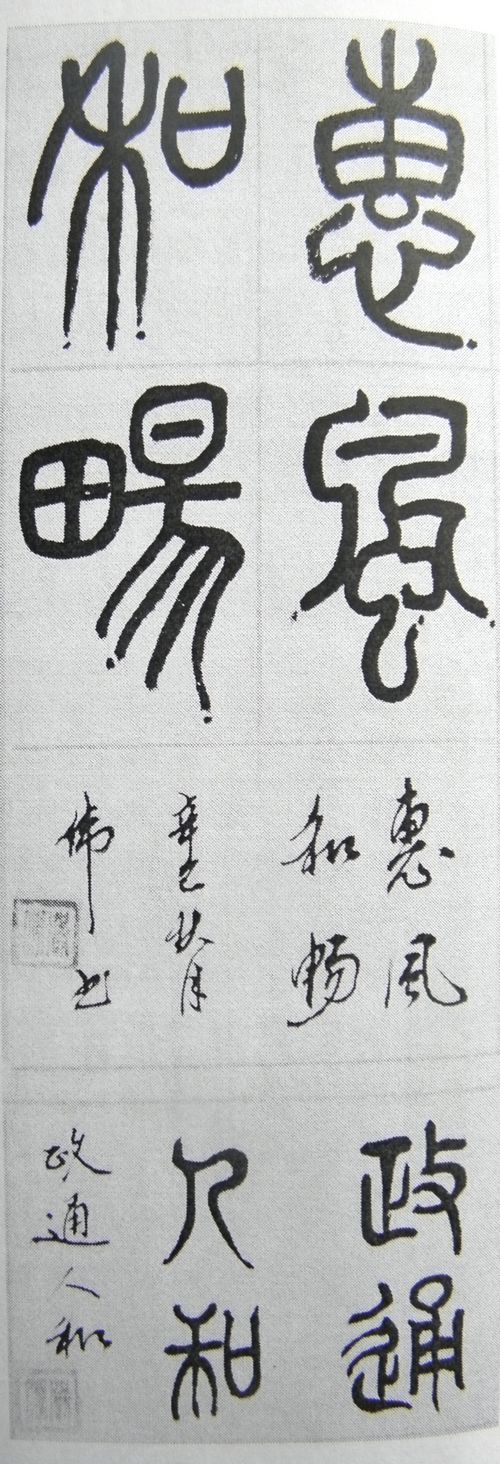 惠風
和暢
惠風
和暢
辛巳秋月
偉書
政通
人和
政通人和